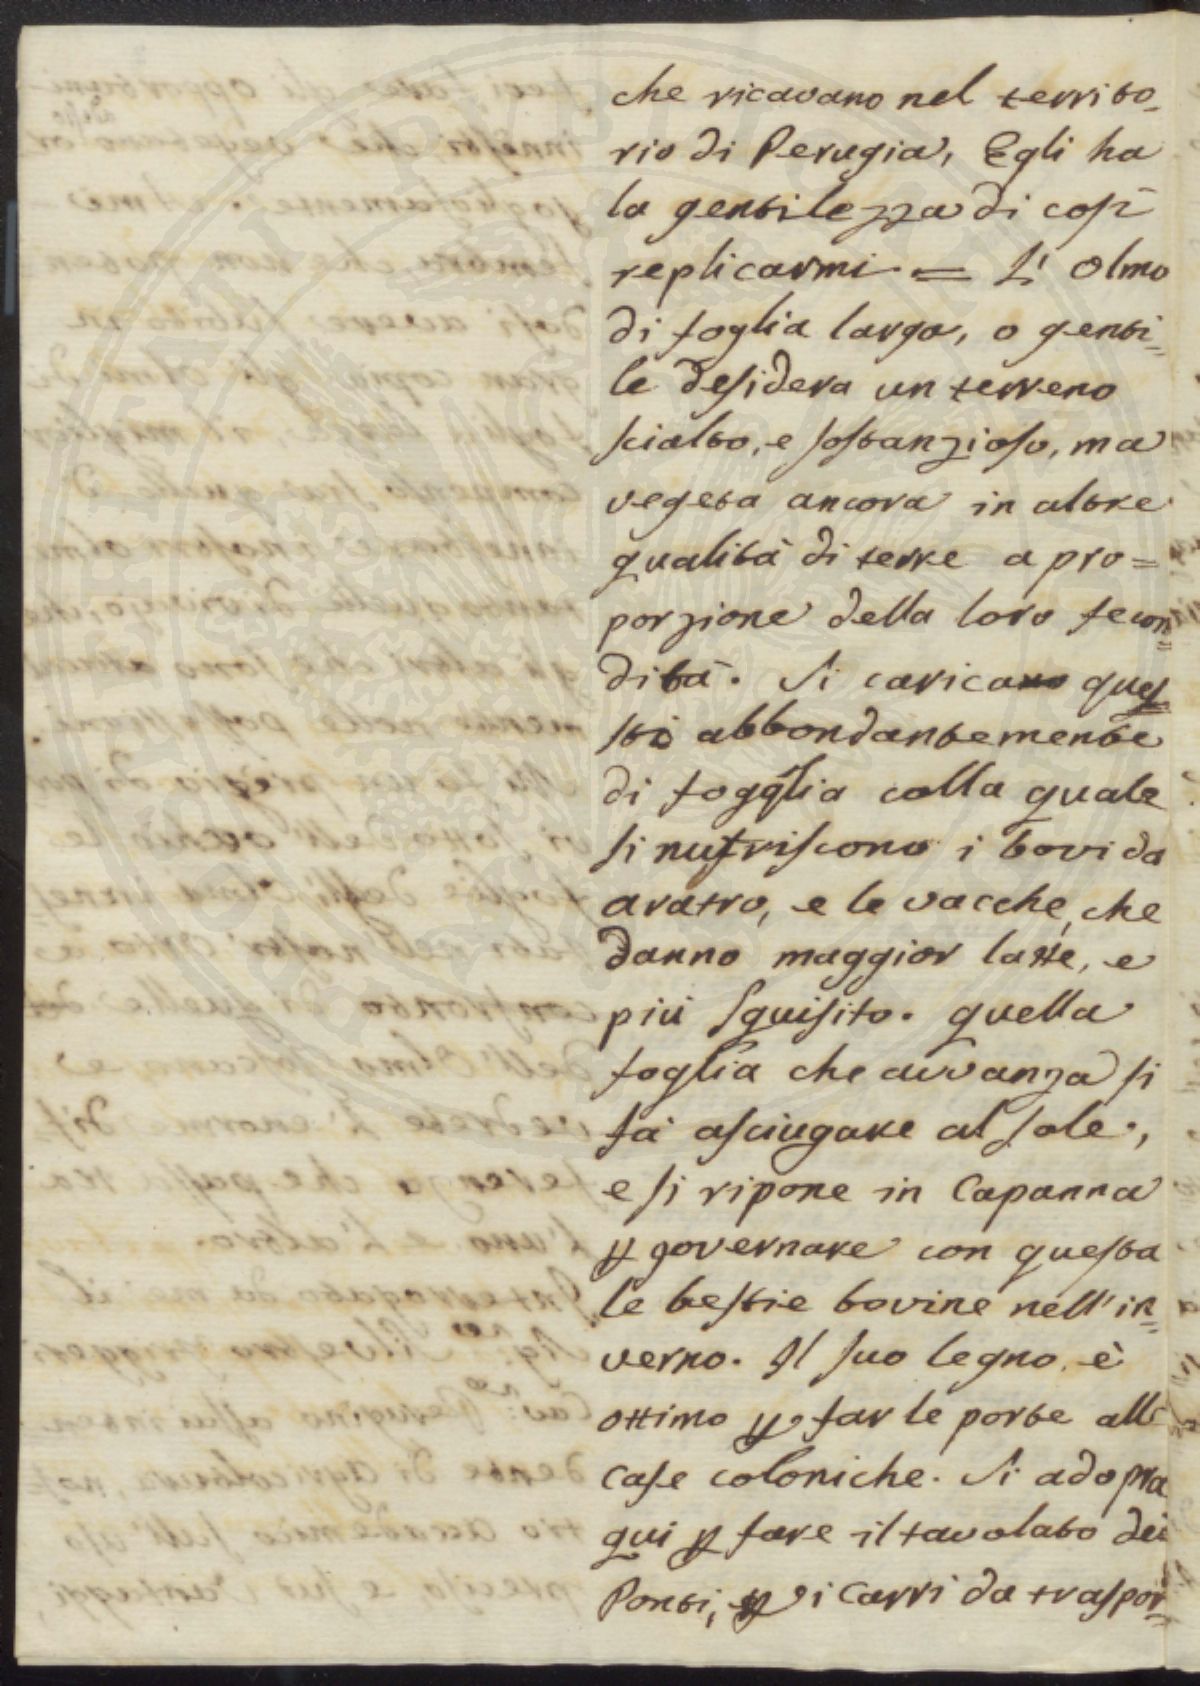 che ricavano nel territo-
rio di Perugia, Egli ha
la gentilezza di così
replicarmi = L'Olmo
di foglia larga, o genti=
le desidera un terreno
scialto, e sostanzioso, ma
vegeta ancora in altre
qualità di terre a pro=
porzione della loro fecon=
dità. Si carica ques=
sto abbondantemente
di foglia colla quale
si nutriscono i bovi da
aratro, e le vacche, che
danno maggior latte, e
più squisito. quella
foglia che avvanza si
fà asciugare al sole,
e si ripone in Capanna
p governare con questa
le bestie bovine nell'in=
verno. Il suo legno è
ottimo p far le porte alle
case coloniche. Si adopra
qui p fare il tavolato dei
Ponti, p i Carri da traspor=